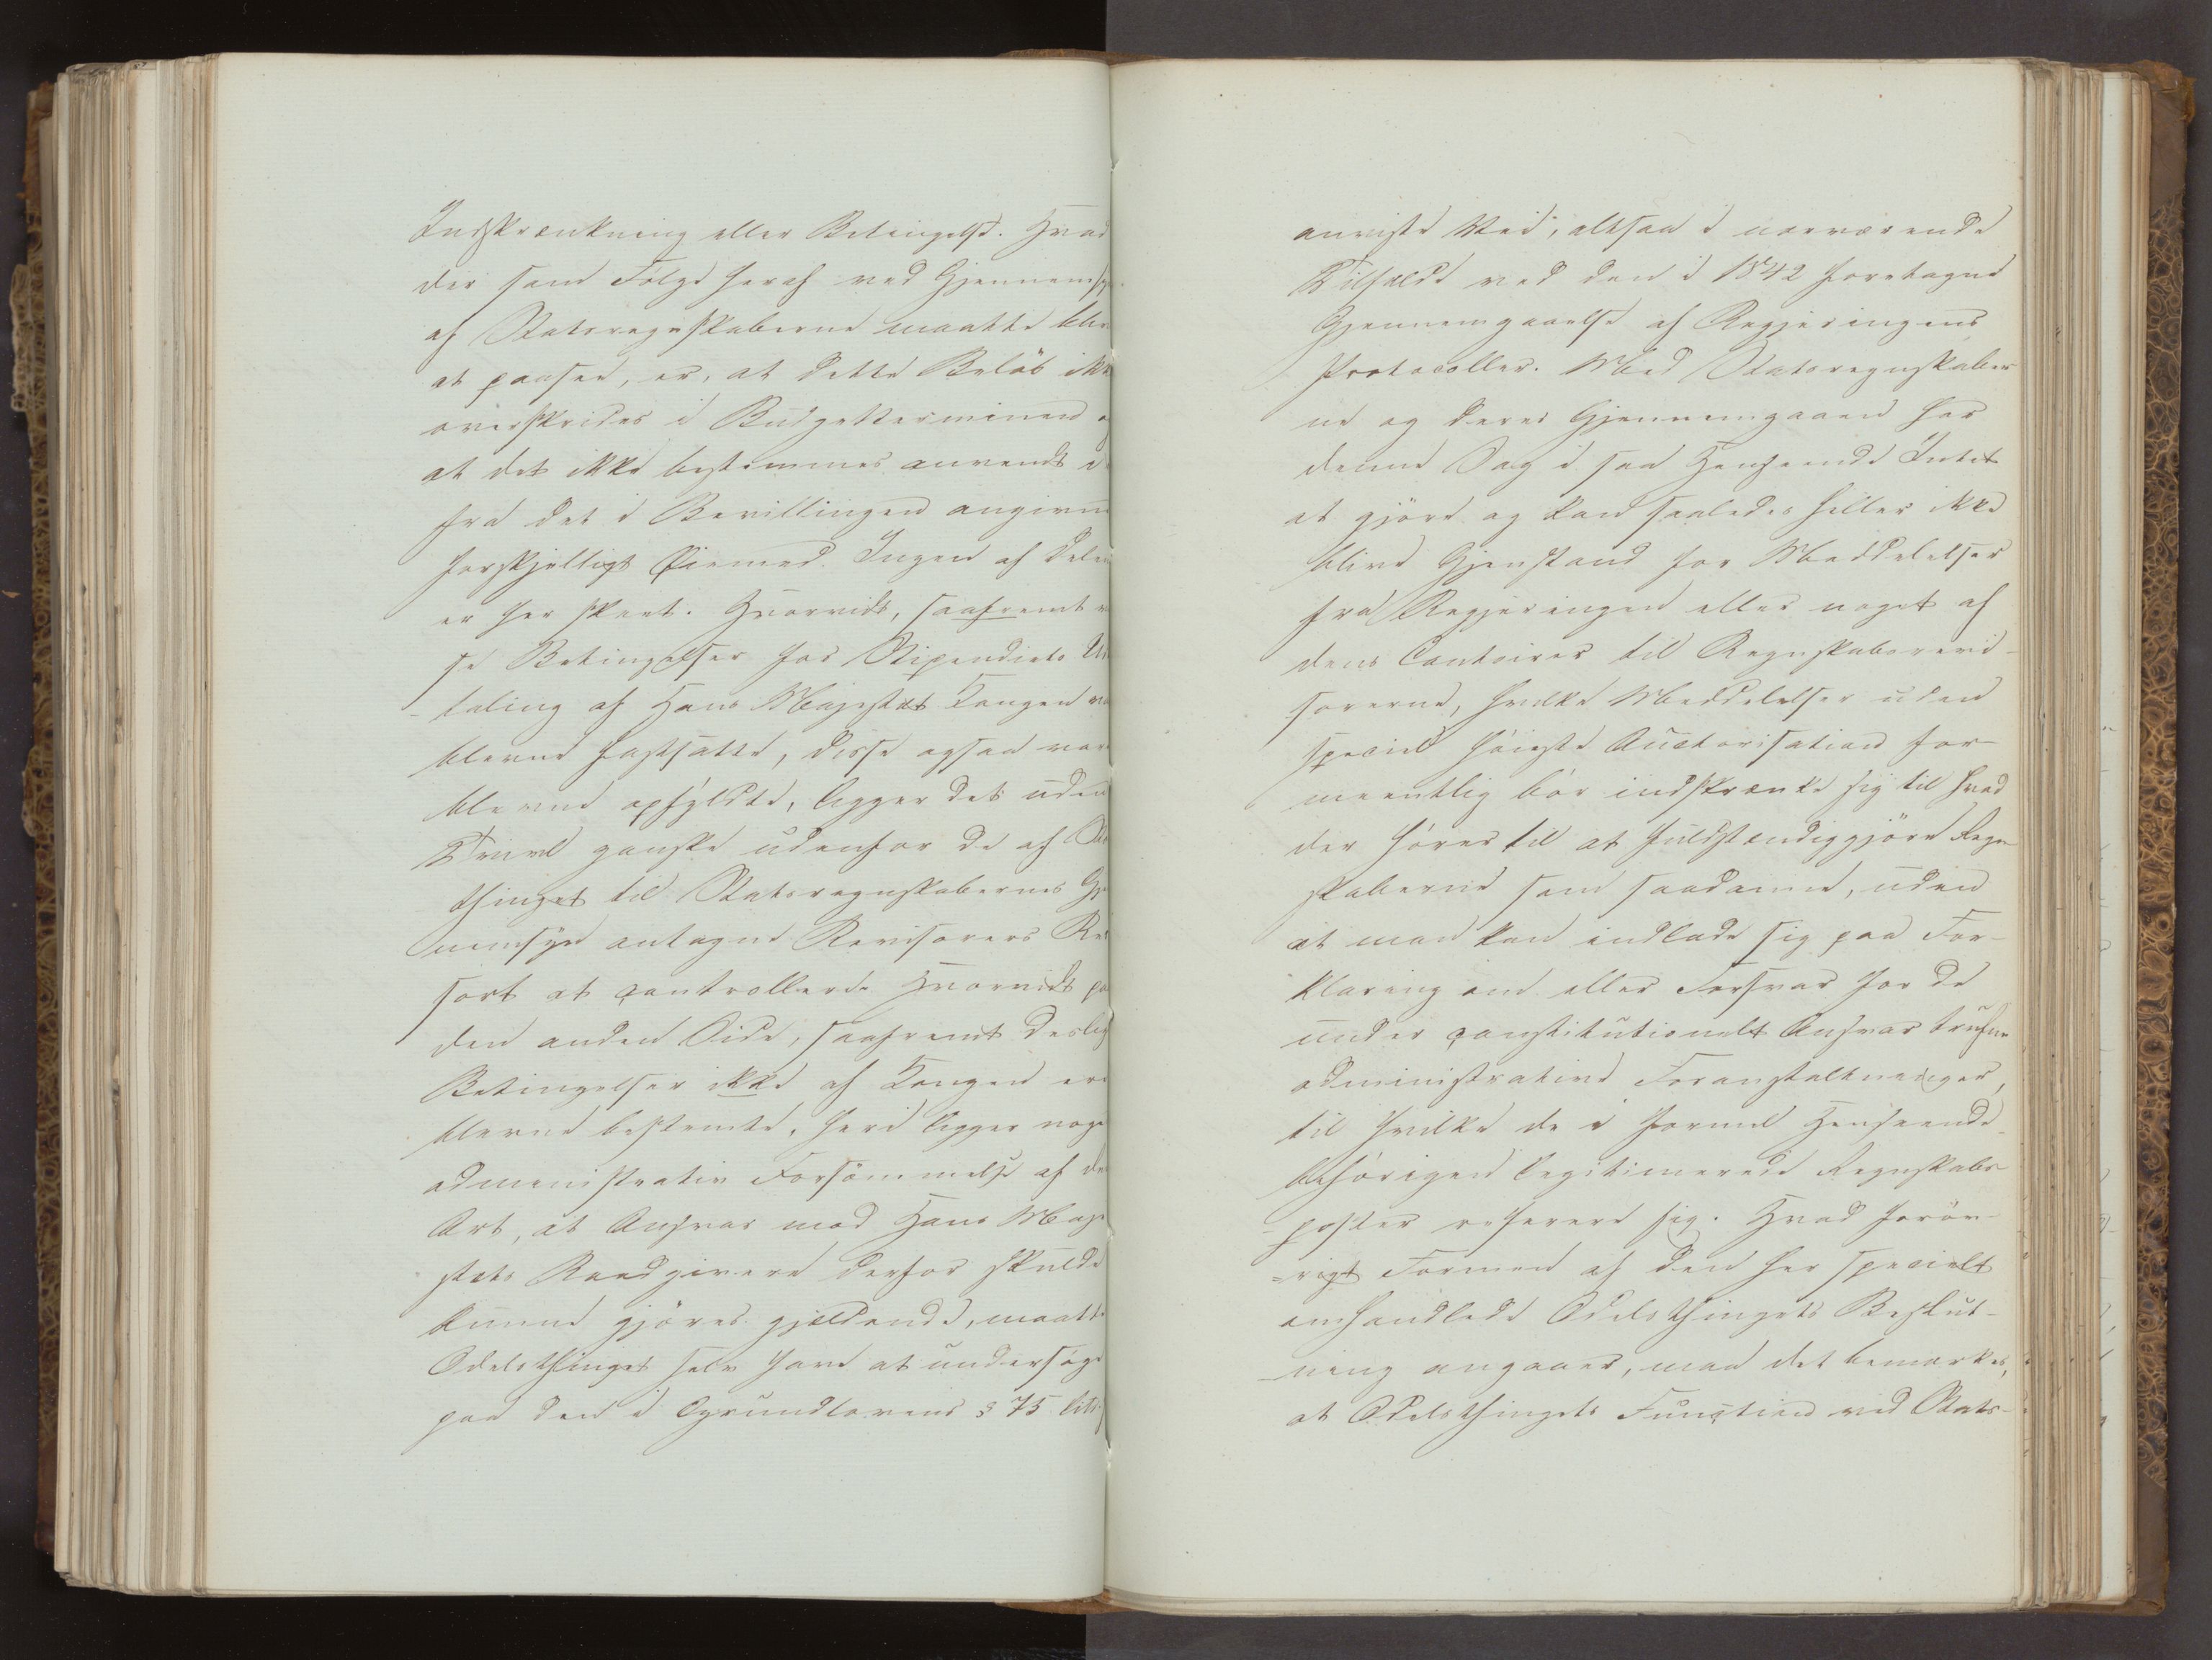 Indskrænkning eller Betingelse. Hvad
der som Følge heraf ved Gjennemsy
af Statsregnskaberne maatte bliv
at paasee, er, at dette Beløb ikk
overskrides i Budgetterminen og
at det ikke bestemmes anvendt
fra det i Bevillingen angivne
forskjelligt Øiemed. Ingen af Dele
er her skeet. Hvorvidt, saafremt
se Betingelser for Stipendiets Ud
taling af Hans Majestæt Kongen va
blevne fastsatte, disse ogsaa vare
blevne opfyldte, ligger det uden
Tvivl ganske udenfor de af Stor
thinget til Statsregnskabernes Gj
nemsyn antagne Revisorers Res
sort at controllere. Hvorvidt pa
den anden Side, saafremt deslig
Betingelser ikke af Kongen ere
blevne bestemte, heri ligger noge
administrativ Forsømmelse af den
Art, at Ansvar mod Hans Maje
stæts Raadgivere derfor skulde
kunne gjøres gjældende, maatte
Odelsthinget selv have at undersøge
paa den i Grundlovens § 75 litr f
anviste Vei, altsaa i nærværende
Tilfælde ved den i 1842 foretagne
Gjennemgaaelse af Regjeringens
Protocoller. Med Statsregnskaber
ne og deres Gjennemgaaen har
denne Sag i saa Henseende Intet
at gjøre og kan saaledes heller ikke
blive Gjenstand for Meddelelser
fra Regjeringen eller noget af
dens Contoirer til Regnskabsrevi-
sorerne, hvilke Meddelelser uden
speciel høieste Auctorisation for-
meentlig bør indskrænke sig til hvad
der hører til at fuldstændiggjøre Regn
skaberne som saadanne, uden
at man kan indlade sig paa For-
klaring om eller Forsvar for de
under constitutionelt Ansvar trufne
administrative Foranstaltninger,
til hvilke de i formel Henseende
behørigen legitimerede Regnskabs-
poster referere sig. Hvad forøv-
rigt Formen af den her specielt
omhandlede Odelsthingets Beslut-
ning angaaer, maa det bemærkes,
at Odelsthingets Function ved Stats-